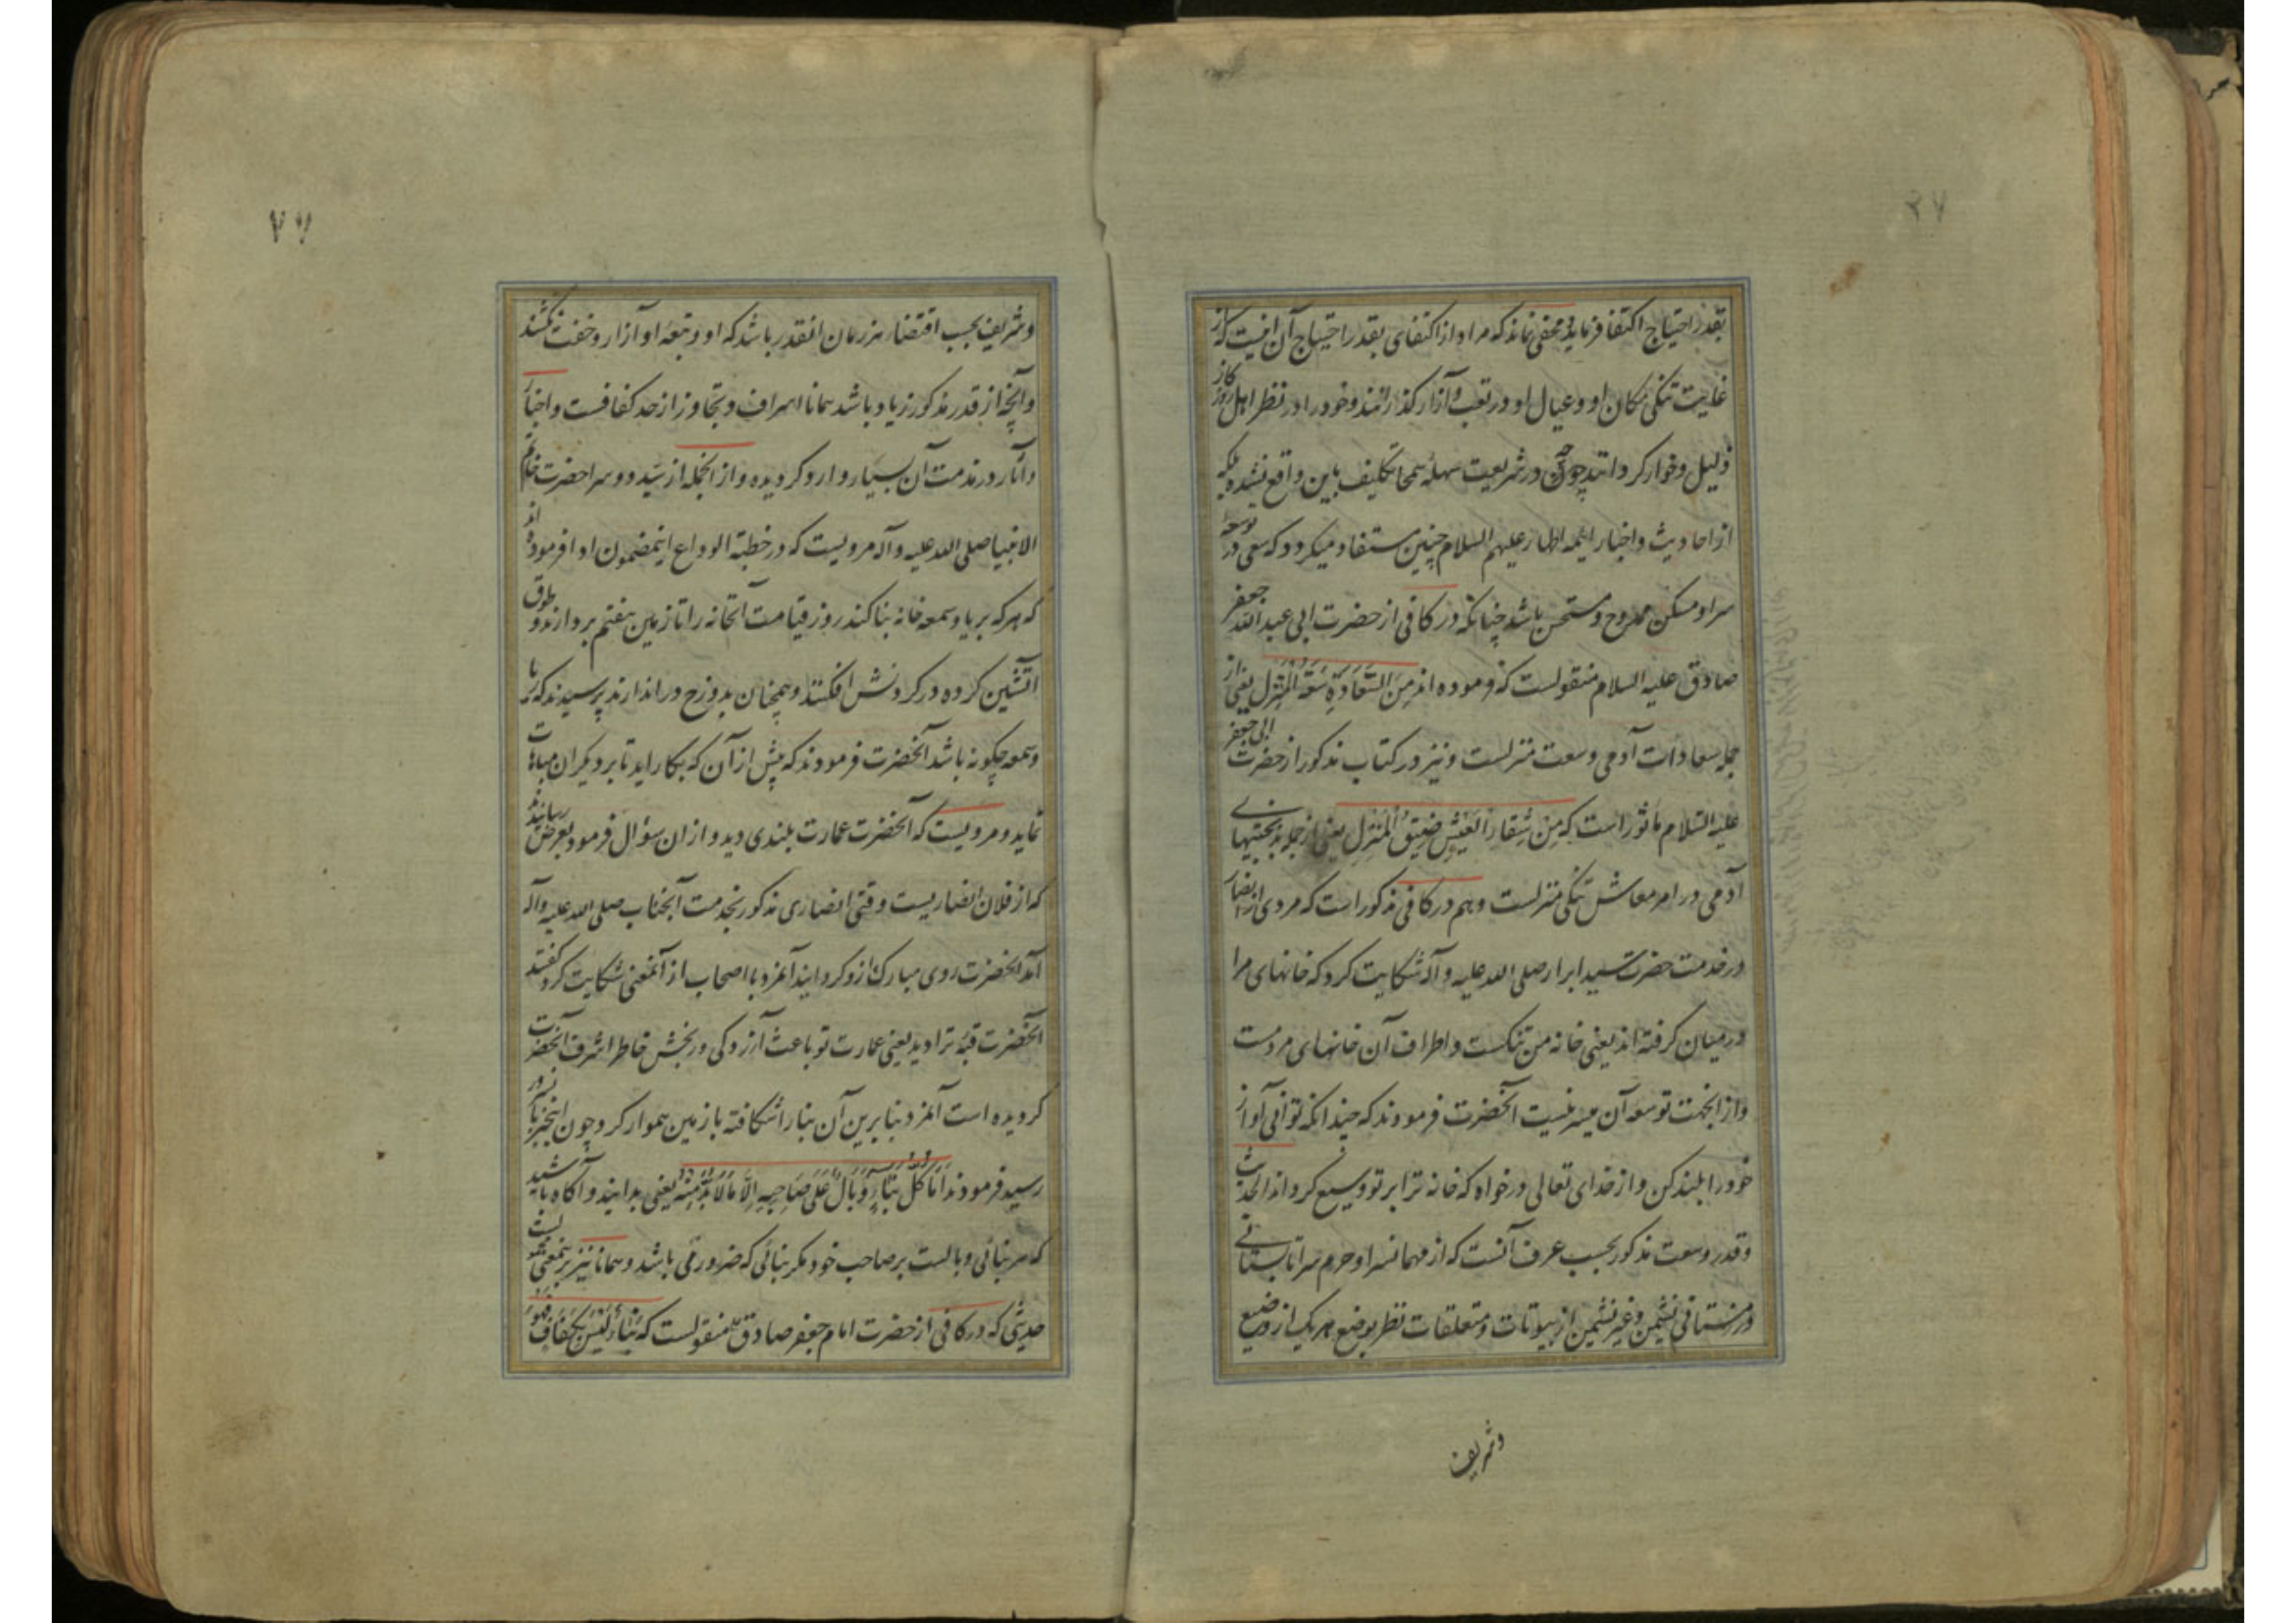 ۲۷
بقدر احتیاج اکتفا فرماید و مخفی نماند که مراد از اکتفای بقدر احتیاج آن نیست که از
غایت تنگی مکان او و عیال او در تعب و آزار گذرانند و خود را در نظر اهل روزگار
ذلیل و خوار گرداند چون در شریعت سهله سمحا تکلیف باین واقع نشده بلکه
از احادیث و اخبار ائمه اطهار علیهم السلام چنین مستفاد میگردد که سعی در توسعه
سرا و مسکن ممدوح و مستحسن باشد چنانکه در کافی از حضرت ابی عبد الله جعفر
صادق علیه السلام منقولست که فرموده اند مِنَ السَّعَادَةِ سَعَةُ الْمَنْزِلِ یعنی از
جمله سعادات آدمی وسعت منزلست و نیز در کتاب مذکور از حضرت ابی جعفر
علیه السلام مأثور است که مِنْ شَقَاءِ الْعَیْشِ ضِیقُ الْمَنْزِلِ یعنی از جمله بدبختیهای
آدمی در امر معاش تنگی منزلست و هم در کافی مذکور است که مردی از انصار
در خدمت حضرت سید ابرار صلی الله علیه و آله شکایت کرد که خانهای مرا
در میان گرفته اند یعنی خانه من تنگست و اطراف آن خانهای مردمست
و از آنجهت توسعه آن میسر نیست آنحضرت فرمودند که چندانکه توانی آواز
خود را بلند کن و از خدای تعالی درخواه که خانه ترا بر تو وسیع گرداند الحدیث
و قدر وسعت مذکور بحسب عرف آنست که از مهمانسرا و حرم سرا تابستانی
و زمستانی نشیمن و غیر نشیمن از بیوتات و متعلقات نظر بوضع هر یک از وضیع
و شریف
۷۷
و شریف بحسب اقتضاء هر زمان آنقدر باشد که او و تبعه او آزار و خفت نکشند
و آنچه از قدر مذکور زیاد باشد همانا اسراف و تجاوز از حد کفافست و اخبار
و آثار در مذمت آن بسیار وارد گردیده و از آنجمله از سید دو سرا حضرت خاتم
الانبیا صلی الله علیه و آله مرویست که در خطبة الوداع اینمضمون ادا فرموده اند
که هر که بریا و سمعه خانه بنا کند روز قیامت آنخانه را تا زمین هفتم بردارند و طوق
آتشین کرده در گردنش افکنند و همچنان بدوزخ در اندازند پرسیدند که ریا
و سمعه چگونه باشد آنحضرت فرمودند که بیش از آن که بکار اید تا بر دیگران مباهات
نماید و مرویست که آنحضرت عمارت بلندی دید و از ان سؤال فرمود بعرض رسانیدند
که از فلان انصاریست وقتی انصاری مذکور بخدمت آنجناب صلی الله علیه و آله
آمد آنحضرت روی مبارک ازو گردانید آنمرد با اصحاب از آنمعنی شکایت کرد گفتند
آنحضرت قبه ترا دید یعنی عمارت تو باعث آزردگی و رنجش خاطر اشرف آنحضرت
گردیده است آنمرد بنابرین آن بنا را شکافته با زمین هموار کرد چون اینخبر بآنسرور
رسید فرمودند اَمَا کُلُّ بِنَاءٍ وَبَالٌ عَلَی صَاحِبِهِ اِلَّا مَا لَا بُدَّ مِنْهُ یعنی بدانید و آگاه باشید
که هر بنائی وبالست بر صاحب خود مگر بنائی که ضرور می باشد و همانا نیز بر ینمعنی
حدیثی که در کافی از حضرت امام جعفر صادق ع منقولست که بِنَاءٌ لَیْسَ بِکَفَافٍ فَهُوَ